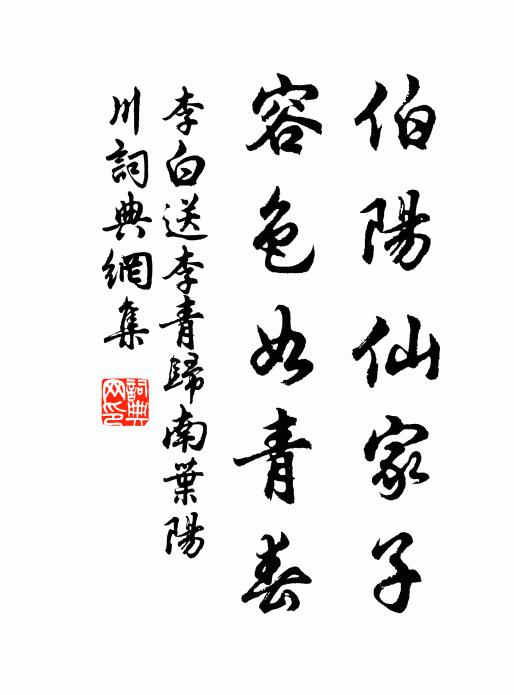 伯陽仙家子
容色如青春
李白送李青歸南葉陽
川詞典網集
詞典網印